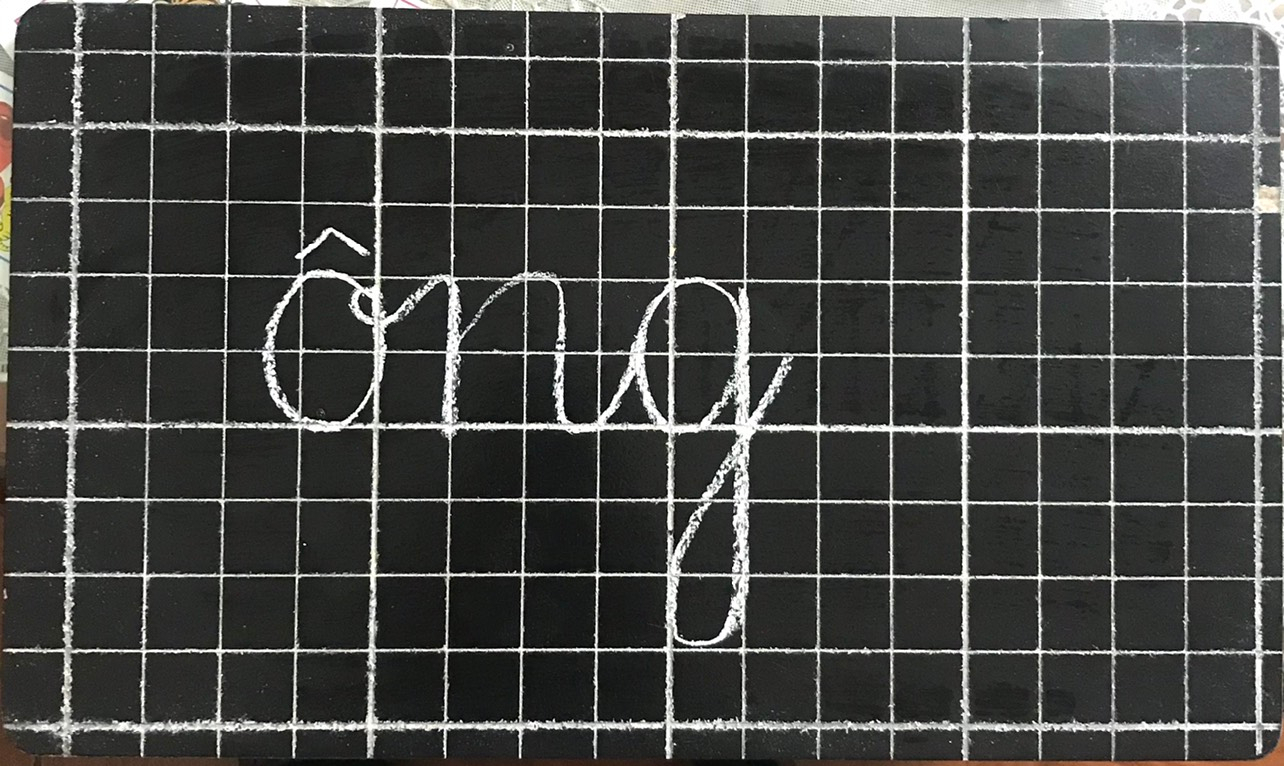 ông